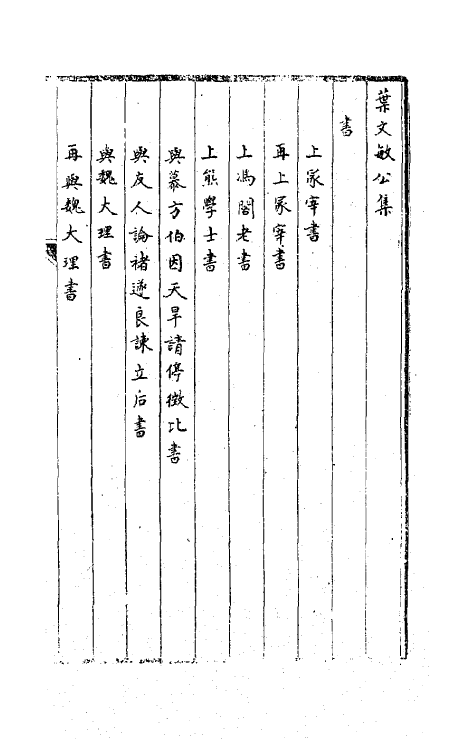 葉文敏公集
書
上冢宰書
再上冢宰書
上馮閣老書
上熊學士書
與慕方伯因天旱請停徵比書
與友人論禇遂良諫立后書
與魏大理書
再與魏大理書